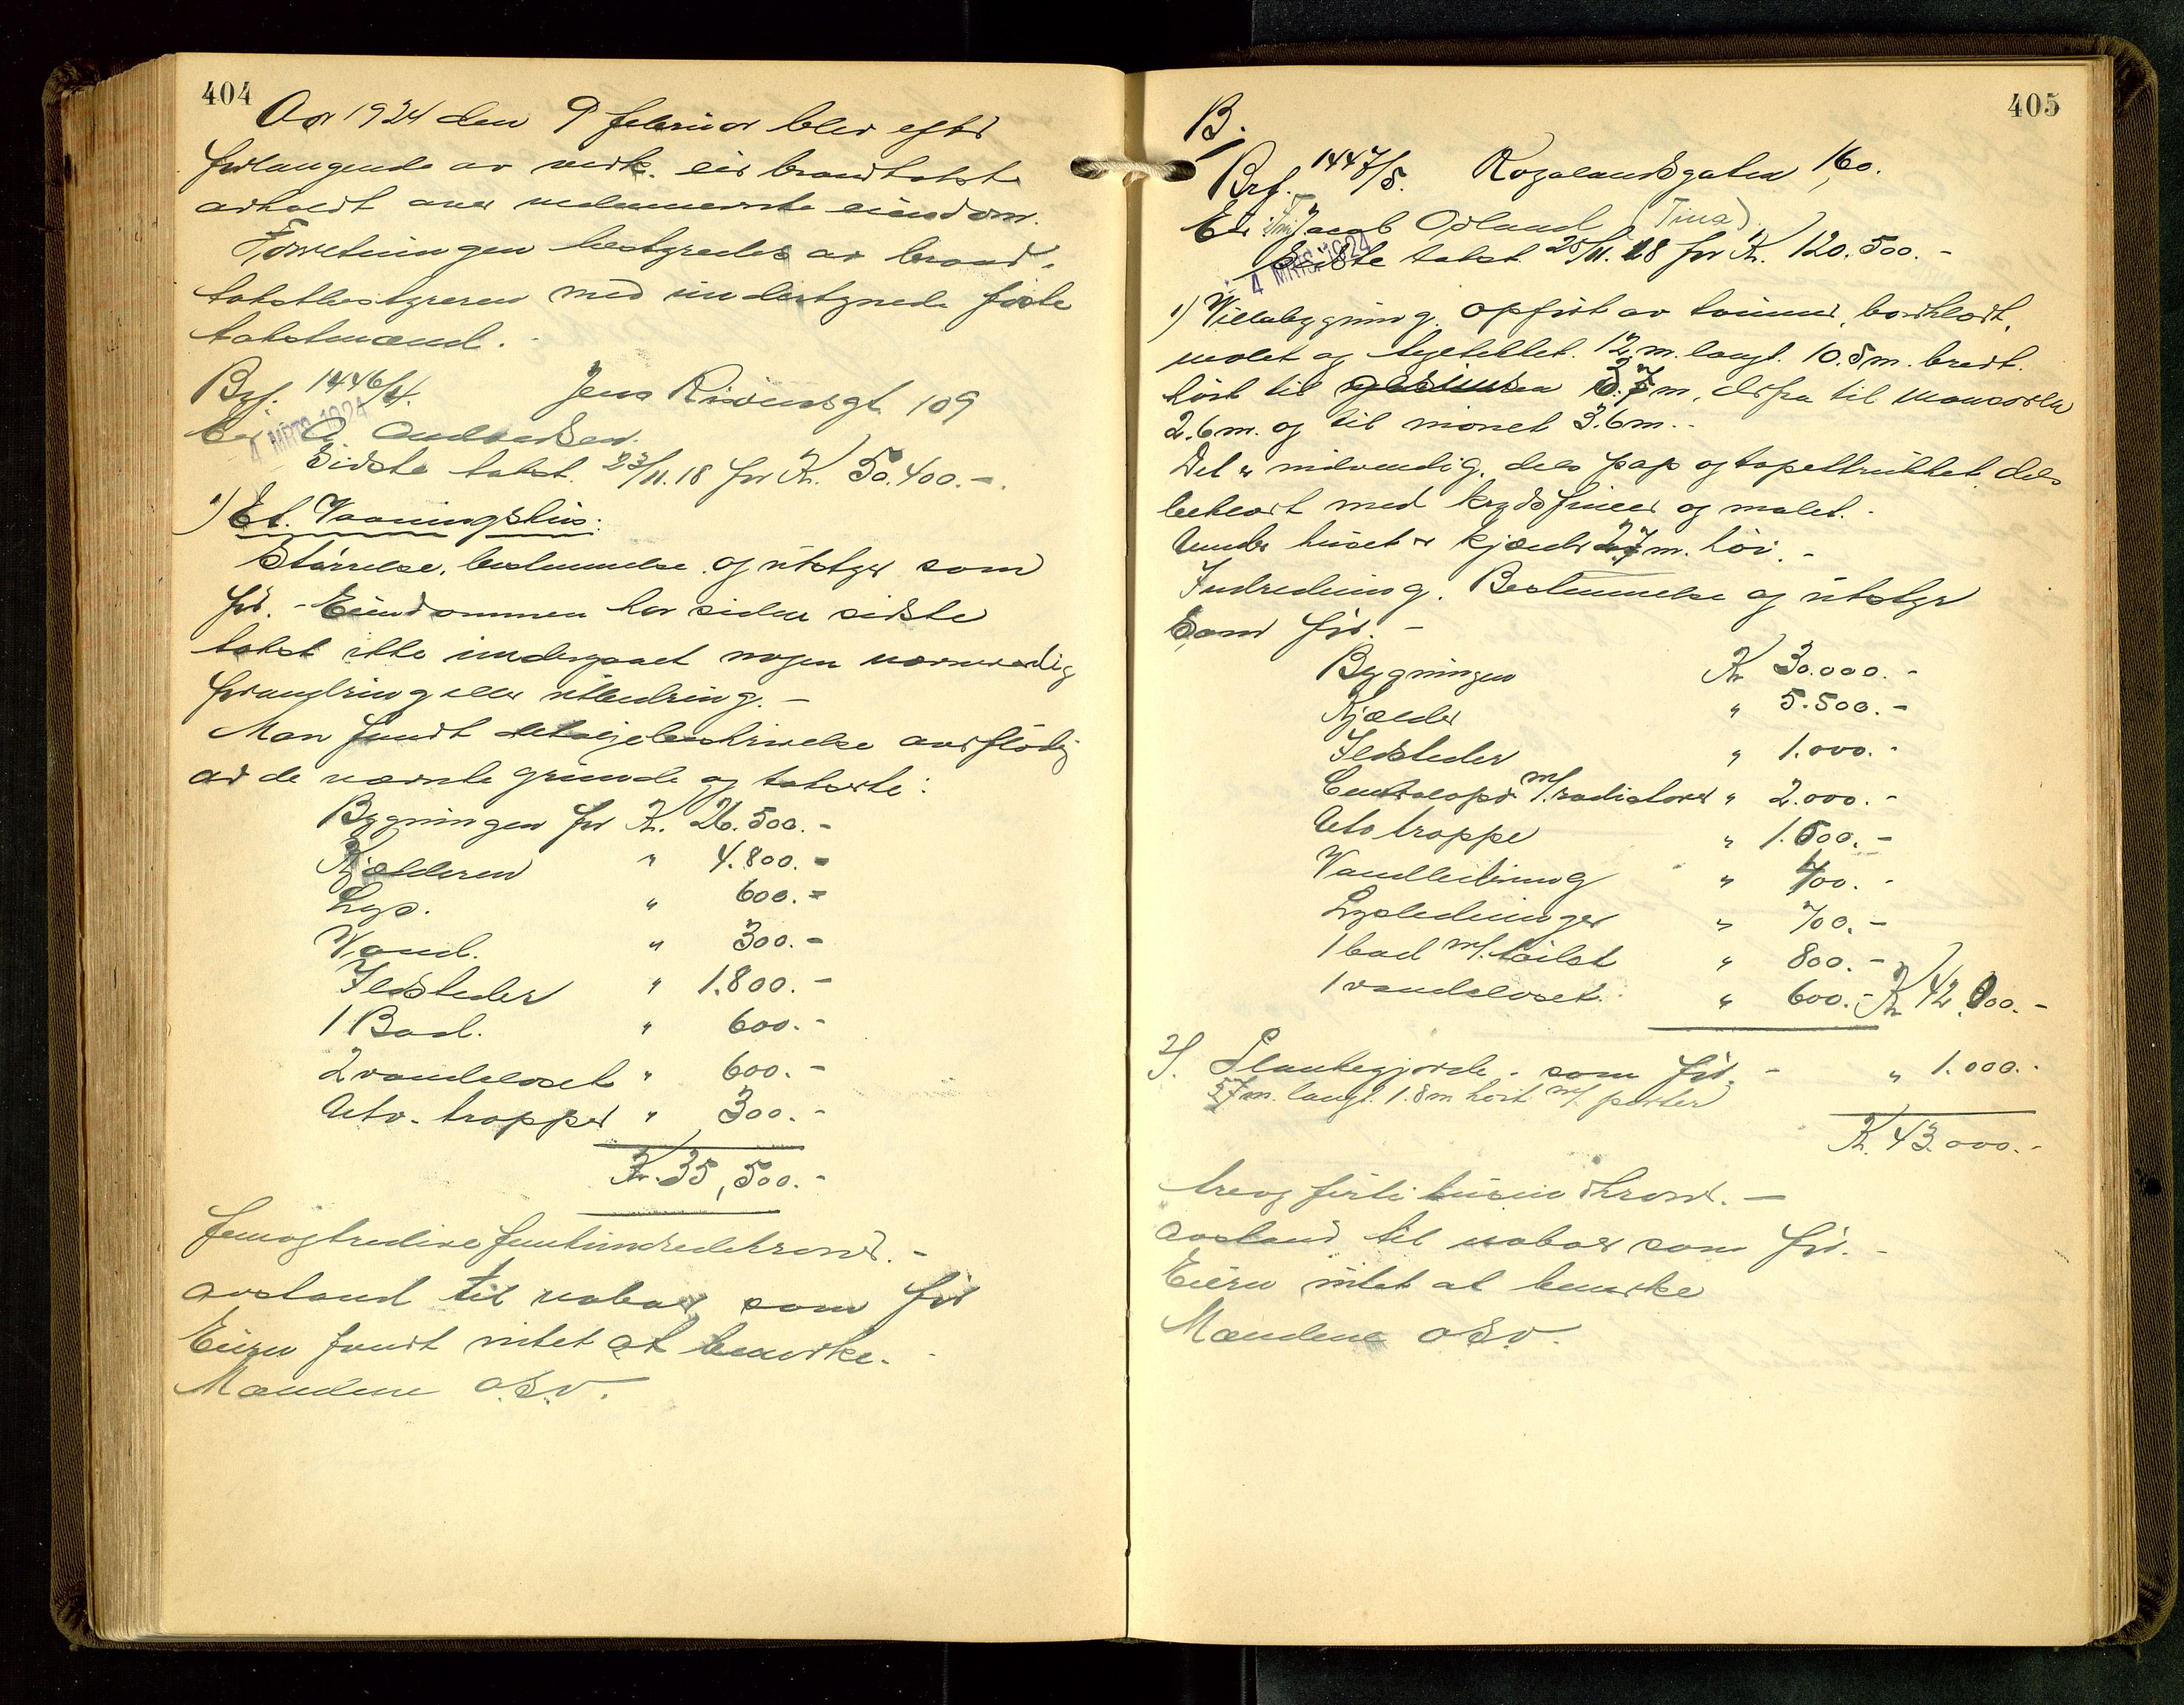 404
Aar 1924 den 9 februar blev efter
forlangende av vedk. eier brandtakst
avholdt over nedennevnte eiendom.
Forretningen bestyredes av brand-
takstbestyreren med undertegnede faste
takstmænd.
Brf. 1446/4. Jens Riisensgt 109
Ei. A. Andersen.
4 MRTS. 1924
Sidste takst. 23/11.18 for Kr. 50.400.-.
1) Et. Vaaningshus:
Størrelse, bestemmelse og utstyr som
før. - Eiendommen har siden sidste
takst ikke undergaaet nogen nævneverdig
forandring eller utbedring. -
Man fandt detaljebeskrivelse overflødig
av de nævnte grunde og takserte:
Bygningen for Kr. 26.500.-
Kjælderen " 4.800.-
Lys. " 600.-
Vand. " 300.-
Ildsteder " 1.800.-
1 Bad. " 600.-
2 vandcloset " 600.-
Utv. trapper " 300.-
Kr. 35,500.-
femogtredive femhundredekroner. -
avstand til naboer som før
Eieren fandt intet at bemerke. -
Mændene o.s.v.
405
B.
Brf. 1447/5. Rogalandsgaten 160.
Ei: Jacob Ødland (Tina)
4 MRTS. 1924
Sidste takst 25/11.18 for Kr. 120.500.-
1) Villabygning. opført av tømmer, bordklædt,
malet og tegltekket. 12 m. langt. 10.5 m. bredt.
høit til gesimsen m, derfra til mansarden
2.6 m. og til mønet 3.6 m. -
Det er indvendig. dels pap og tapettrukket, dels
beklædt med krydsfineer og malet. -
Under huset er kjælder 2.7 m. høi. -
Indredning. Bestemmelse og utstyr
Som før. -
Bygningen Kr 30.000.-
Kjælder " 5.500.-
Ildsteder " 1.000.-
Centralopv. m/. radiatorer " 2.000.-
Utv trappe " 1.000.-
Vandledning " 400.-
Lysledninger " 700.-
1 bad m/. toilet " 800.-
1 vandcloset. " 600.- Kr 42.000.-
2). Plankegjerde. som før. - " 1.000.-
27 m. langt. 1.8 m høit m/. porter
Kr. 43.000.-
treogførtitusindkroner. -
avstand til naboer som før. -
Eieren intet at bemerke
Mændene o.s.v.